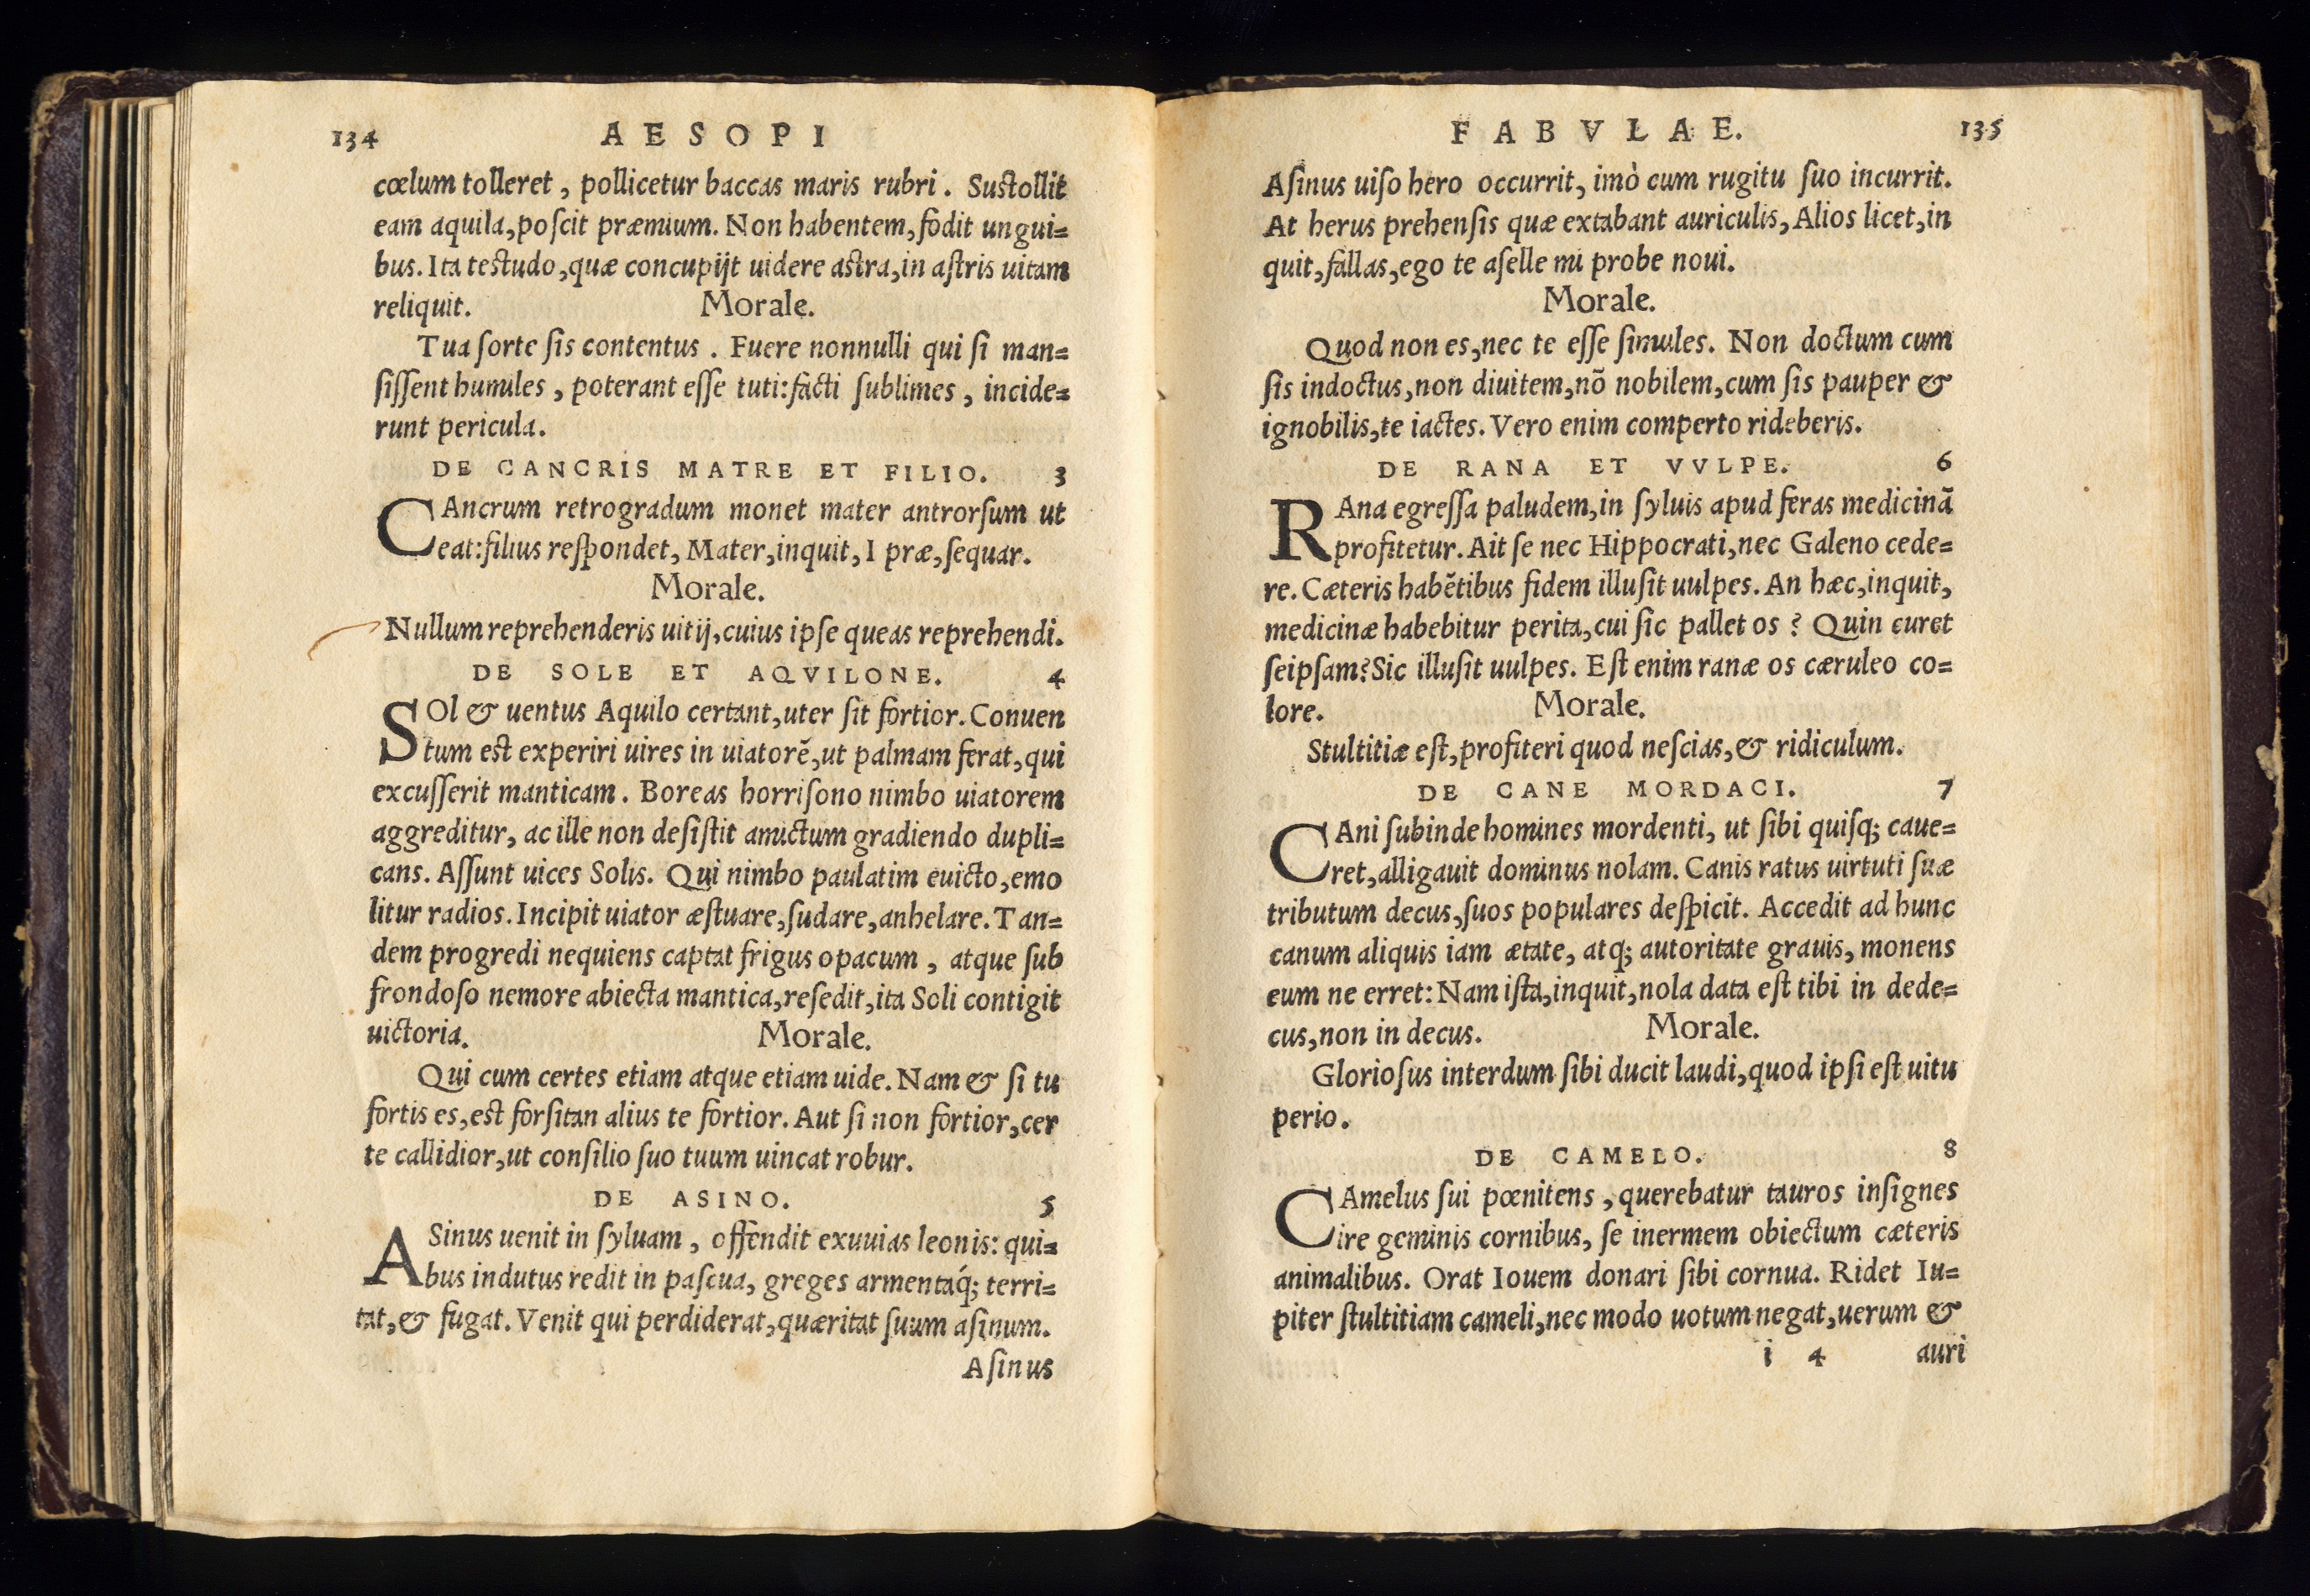 134 AESOPI
cœlum tolleret, pollicetur baccas maris rubri. Sustollit
eam aquila, poſcit præmium. Non habentem, fodit ungui=
bus. Ita testudo, quæ concupijt uidere astra, in aſtris uitam
reliquit. Morale.
Tua ſorte ſis contentus. Fuere nonnulli qui ſi man=
ſiſſent humiles, poterant eſſe tuti: facti ſublimes, incide=
runt pericula.
DE CANCRIS MATRE ET FILIO. 3
CAncrum retrogradum monet mater antrorſum ut
eat: filius reſpondet, Mater, inquit, I præ, ſequar.
Morale.
Nullum reprehenderis uitij, cuius ipſe queas reprehendi.
DE SOLE ET AQVILONE. 4
SOl & uentus Aquilo certant, uter ſit fortior. Conuen
tum est experiri uires in uiatorẽ, ut palmam ferat, qui
excuſſerit manticam. Boreas horriſono nimbo uiatorem
aggreditur, ac ille non deſiſtit amictum gradiendo dupli=
cans. Aſſunt uices Solis. Qui nimbo paulatim euicto, emo
litur radios. Incipit uiator æſtuare, ſudare, anhelare. Tan=
dem progredi nequiens captat frigus opacum, atque ſub
frondoſo nemore abiecta mantica, reſedit, ita Soli contigit
uictoria. Morale.
Qui cum certes etiam atque etiam uide. Nam & ſi tu
fortis es, est forſitan alius te fortior. Aut ſi non fortior, cer
te callidior, ut conſilio ſuo tuum uincat robur.
DE ASINO. 5
ASinus uenit in ſyluam, offendit exuuias leonis: qui=
bus indutus redit in paſcua, greges armentaq́; terri=
tat, & fugat. Venit qui perdiderat, quæritat ſuum aſinum.
Aſinus
FABVLAE. 135
Aſinus uiſo hero occurrit, imò cum rugitu ſuo incurrit.
At herus prehenſis quæ extabant auriculis, Alios licet, in
quit, fallas, ego te aſelle mi probe noui.
Morale.
Quod non es, nec te eſſe ſimules. Non doctum cum
ſis indoctus, non diuitem, nõ nobilem, cum ſis pauper &
ignobilis, te iactes. Vero enim comperto rideberis.
DE RANA ET VVLPE. 6
RAna egreſſa paludem, in ſyluis apud feras medicinã
profitetur. Ait ſe nec Hippocrati, nec Galeno cede=
re. Cæteris habẽtibus fidem illuſit uulpes. An hæc, inquit,
medicinæ habebitur perita, cui ſic pallet os? Quin curet
ſeipſam? Sic illuſit uulpes. Eſt enim ranæ os cæruleo co=
lore. Morale.
Stultitiæ eſt, profiteri quod neſcias, & ridiculum.
DE CANE MORDACI. 7
CAni ſubinde homines mordenti, ut ſibi quiſq; caue=
ret, alligauit dominus nolam. Canis ratus uirtuti ſuæ
tributum decus, ſuos populares deſpicit. Accedit ad hunc
canum aliquis iam ætate, atq; autoritate grauis, monens
eum ne erret: Nam iſta, inquit, nola data eſt tibi in dede=
cus, non in decus. Morale.
Glorioſus interdum ſibi ducit laudi, quod ipſi eſt uitu
perio.
DE CAMELO. 8
CAmelus ſui pœnitens, querebatur tauros inſignes
ire geminis cornibus, ſe inermem obiectum cæteris
animalibus. Orat Iouem donari ſibi cornua. Ridet Iu=
piter ſtultitiam cameli, nec modo uotum negat, uerum &
i 4 auri